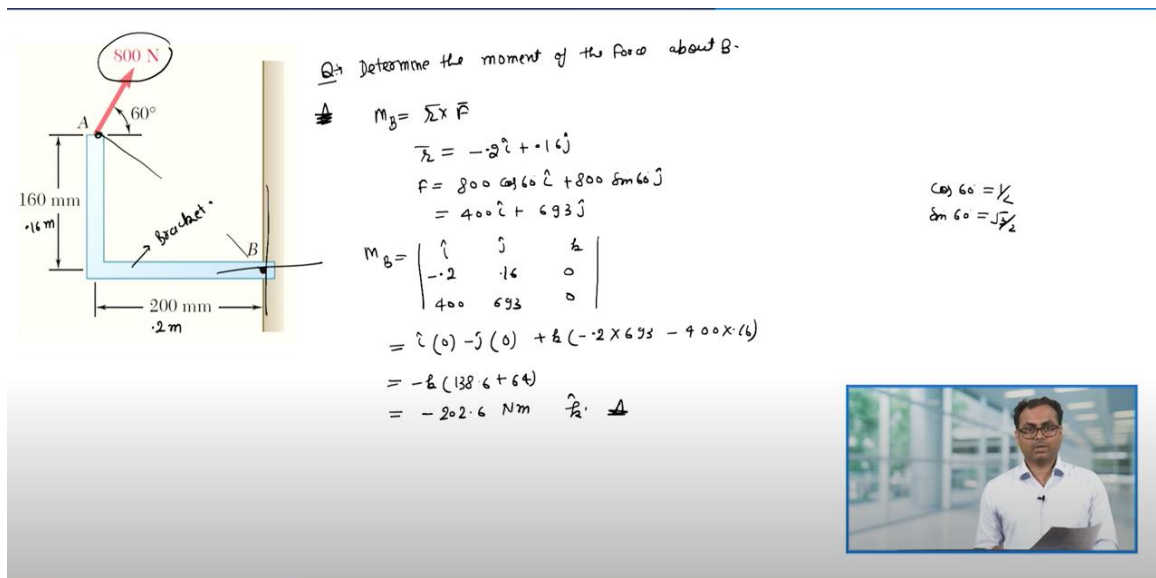 800 N
60°
A
160 mm
.16m
Bracket.
B
200 mm
.2m
Q:→ Determine the moment of the force about B.
M_B = r̄ × F̄
r̄ = -.2î + .16ĵ
F = 800 cos 60° î + 800 Sin 60° ĵ
= 400î + 693ĵ
M_B = | î ĵ k |
| -.2 .16 0 |
| 400 693 0 |
= î (0) - ĵ (0) + k (-.2 × 693 - 400 × .16)
= -k (138.6 + 64)
= - 202.6 Nm k̂.
cos 60° = 1/2
sin 60° = √3/2